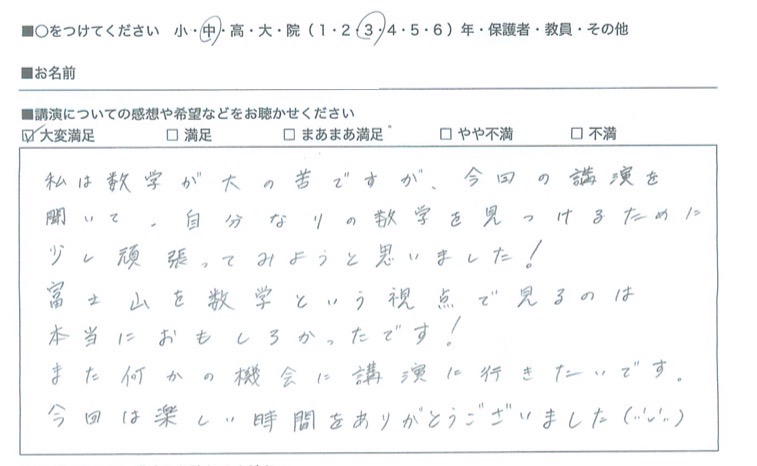 ■○をつけてください 小・中・高・大・院（1・2・3・4・5・6）年・保護者・教員・その他
■お名前
■講演についての感想や希望などをお聴かせください
☑ 大変満足 □ 満足 □ まあまあ満足 □ やや不満 □ 不満
私は数学が大の苦ですが、今回の講演を
聞いて、自分なりの数学を見つけるために
少し頑張ってみようと思いました！
富士山を数学という視点で見るのは
本当におもしろかったです！
また何かの機会に講演に行きたいです。
今回は楽しい時間をありがとうございました(..'ᴗ'..)